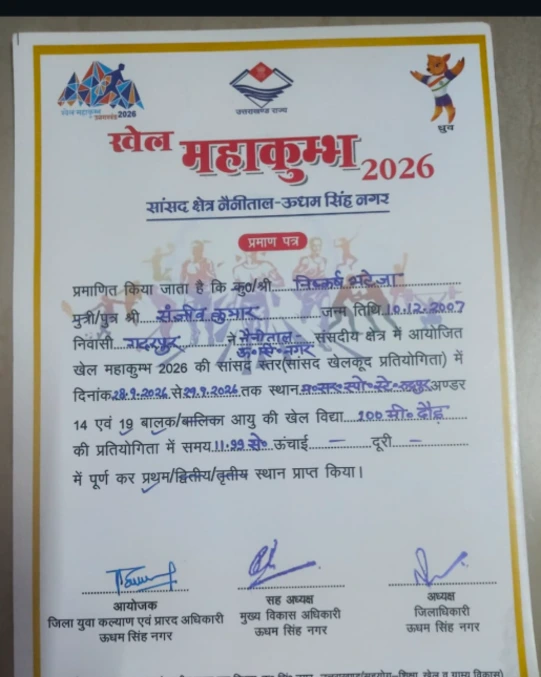 खेल महाकुम्भ
उत्तराखण्ड 2026
उत्तराखण्ड राज्य
ध्रुव
खेल महाकुम्भ 2026
सांसद क्षेत्र नैनीताल-ऊधम सिंह नगर
प्रमाण पत्र
प्रमाणित किया जाता है कि कु0/श्री....निष्कर्ष भटेजा
मुत्री/पुत्र श्री संजीव कुमार जन्म तिथि 10.12.2007
निवासी गदरपुर ने नैनीताल- ऊ०सिं०नगर संसदीय क्षेत्र में आयोजित
खेल महाकुम्भ 2026 की सांसद स्तर(सांसद खेलकूद प्रतियोगिता) में
दिनांक 28.9.2026 से 29.9.2026 तक स्थान म०स०स्पो०स्टे०रुद्रपुर अण्डर
14 एवं 19 बालक/बालिका आयु की खेल विद्या 100 मी० दौड़
की प्रतियोगिता में समय 11.99 से० ऊंचाई – दूरी –
में पूर्ण कर प्रथम/द्वितीय/तृतीय स्थान प्राप्त किया।
आयोजक
जिला युवा कल्याण एवं प्रारद अधिकारी
ऊधम सिंह नगर
सह अध्यक्ष
मुख्य विकास अधिकारी
ऊधम सिंह नगर
अध्यक्ष
जिलाधिकारी
ऊधम सिंह नगर